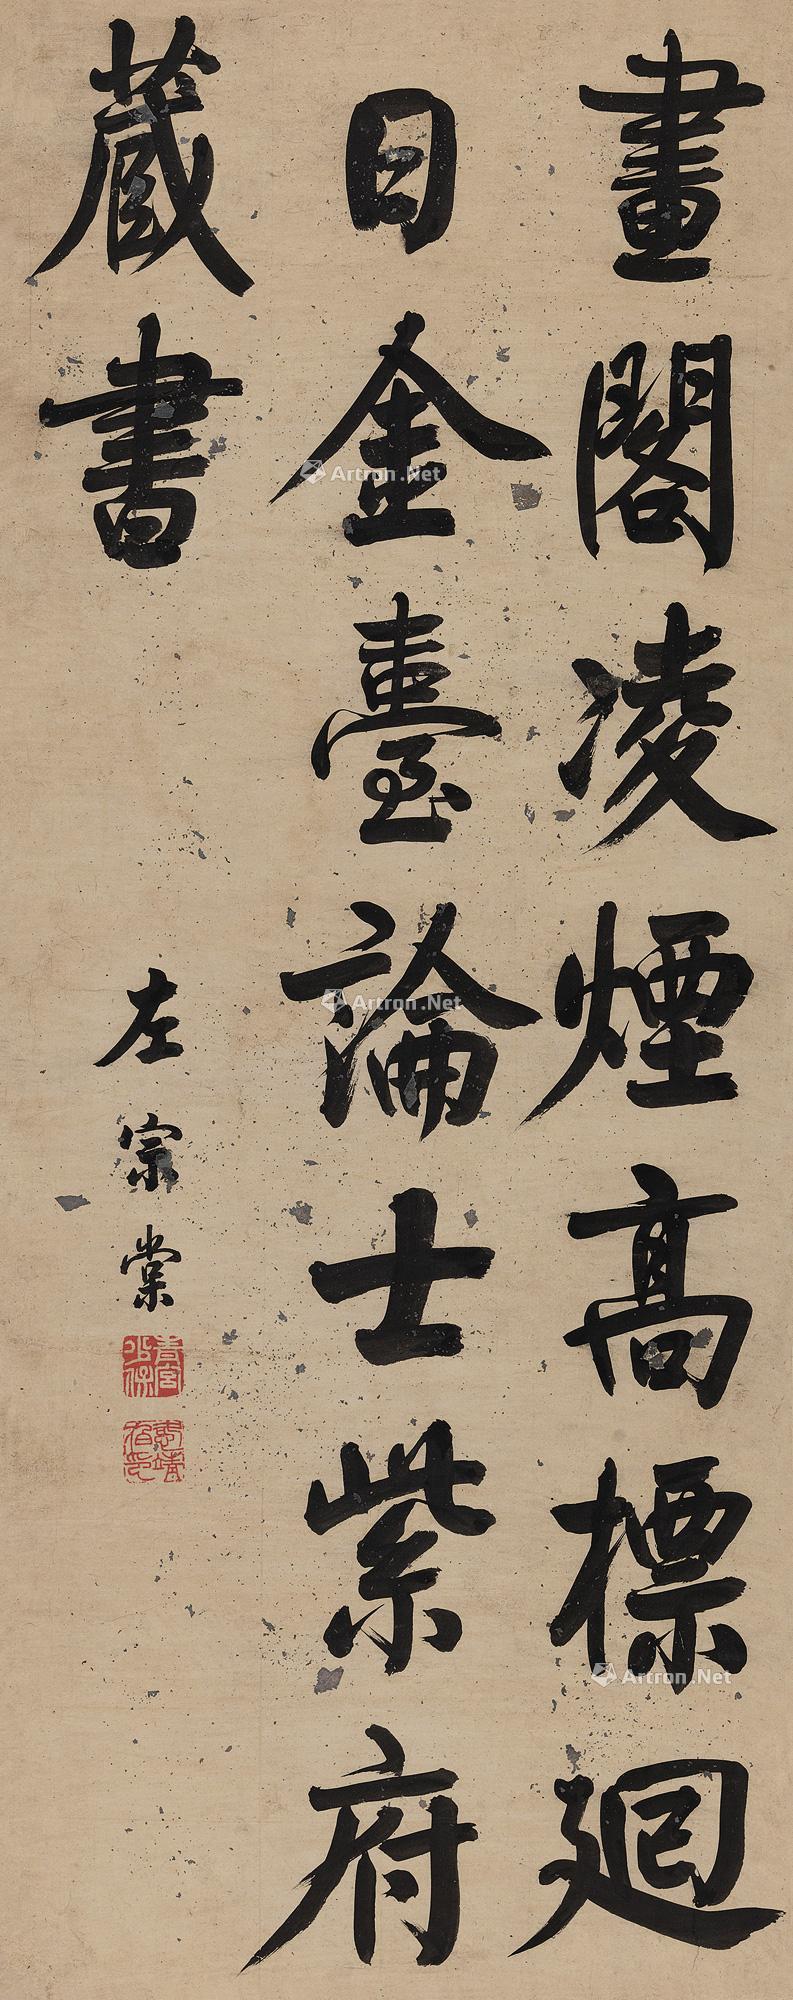 畫閣凌煙高標迴
日金臺論士紫府
藏書
左宗棠
Artron.Net
Artron.Net
Artron.Net